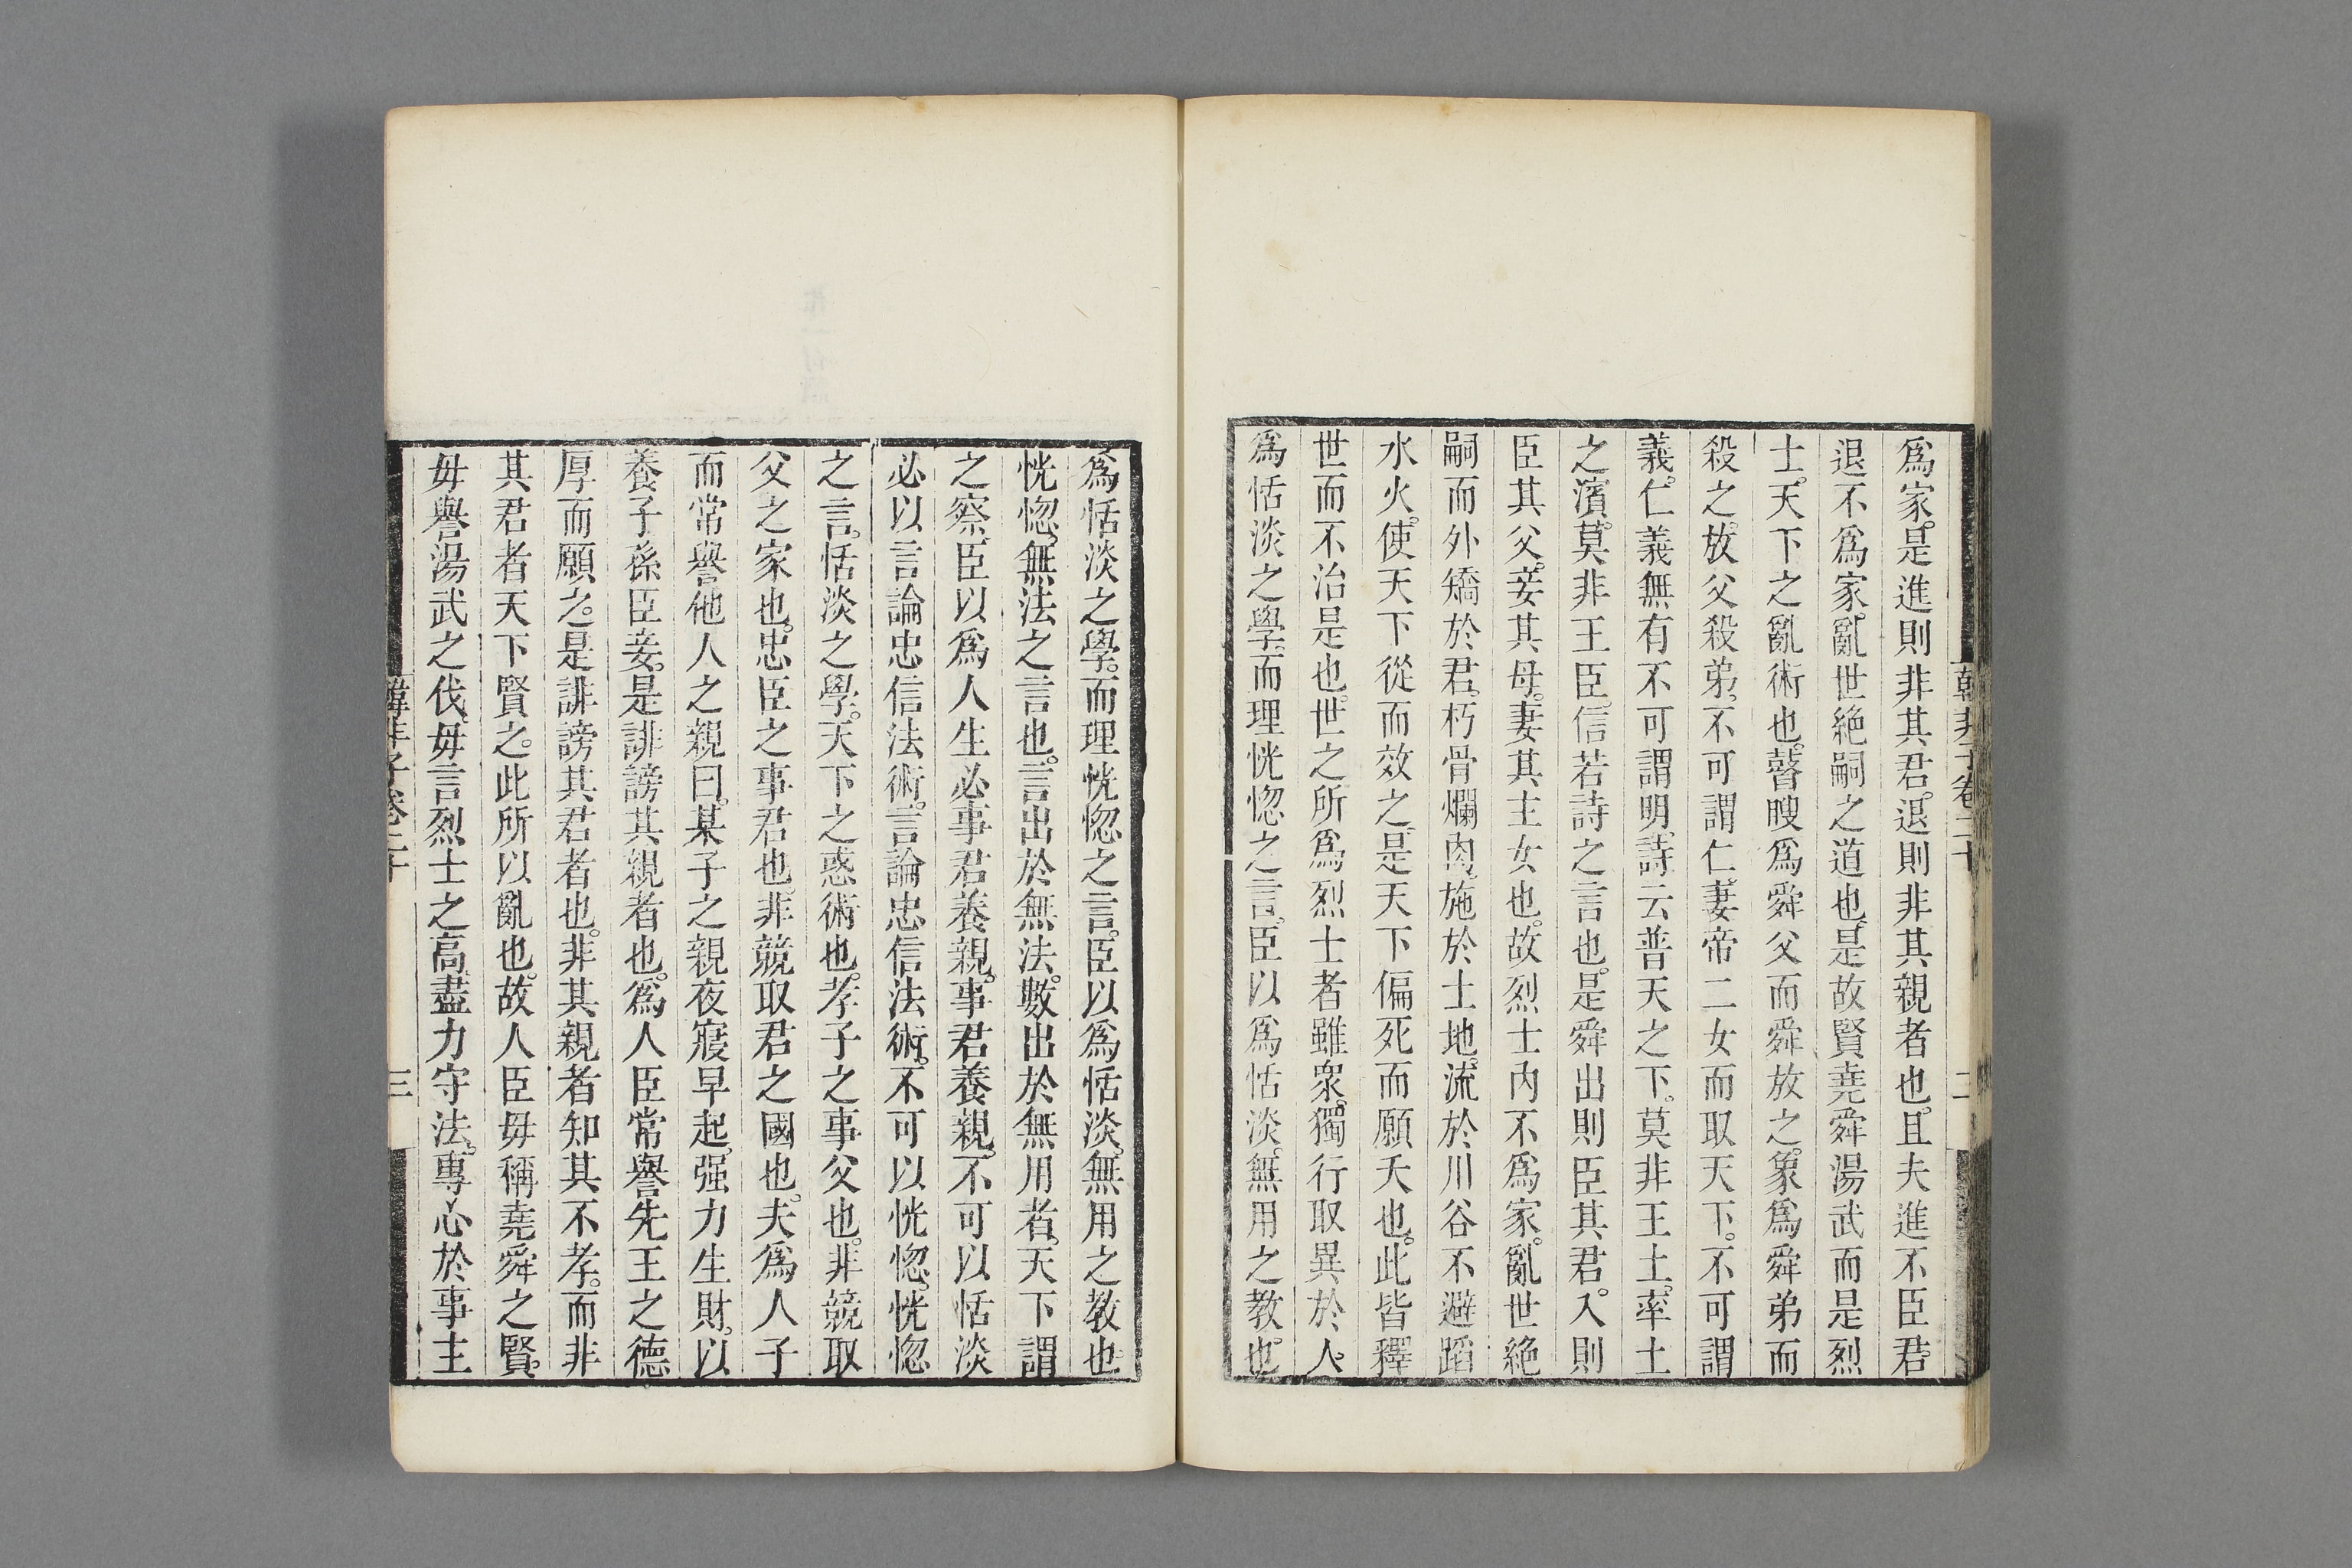 爲家。是進則非其君。退則非其親者也。且夫進不臣君。
退不爲家。亂世絶嗣之道也。是故賢堯舜湯武而是烈
士。天下之亂術也。瞽瞍爲舜父而舜放之。象爲舜弟而
殺之。放父殺弟。不可謂仁。妻帝二女而取天下。不可謂
義。仁義無有不可謂明。詩云普天之下。莫非王土。率土
之濱。莫非王臣。信若詩之言也。是舜出則臣其君。入則
臣其父。妾其母。妻其主女也。故烈士内不爲家。亂世絶
嗣而外矯於君。朽骨爛肉。施於土地。流於川谷不避蹈
水火。使天下從而效之。是天下偏死而願夭也。此皆釋
世而不治是也。世之所爲烈士者雖衆。獨行取異於人。
爲恬淡之學。而理恍惚之言。臣以爲恬淡。無用之教也。
韓非子卷二十
二
爲恬淡之學。而理恍惚之言。臣以爲恬淡。無用之教也。
恍惚。無法之言也。言出於無法。數出於無用者。天下謂
之察。臣以爲人生必事君養親。事君養親。不可以恬淡
必以言論忠信法術。言論忠信法術。不可以恍惚。恍惚
之言。恬淡之學。天下之惑術也。孝子之事父也。非競取
父之家也。忠臣之事君也。非競取君之國也。夫爲人子
而常譽他人之親曰。某子之親夜寢早起。强力生財。以
養子孫臣妾。是誹謗其親者也。爲人臣常譽先王之德
厚而願之。是誹謗其君者也。非其親者知其不孝。而非
其君者天下賢之。此所以亂也。故人臣毋稱堯舜之賢。
毋譽湯武之伐。毋言烈士之高。盡力守法。專心於事主
韓非子卷二十
三